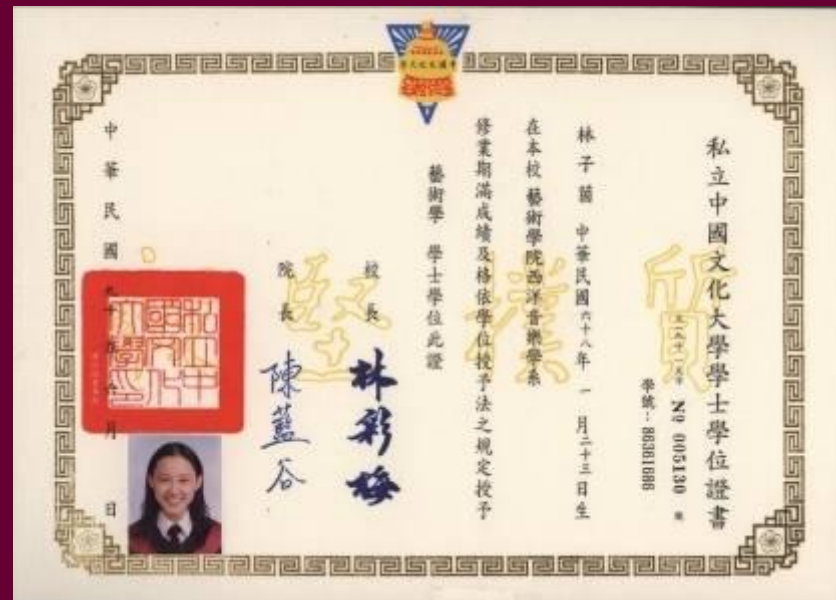 私立中國文化大學學士學位證書
№ 005130 號
學號：86361686
林子茵 中華民國六十八年 一 月二十三日生
在本校 藝術學院西洋音樂學系
修業期滿成績及格依學位授予法之規定授予
藝術學 學士學位此證
校長 林彩梅
院長 陳藍谷
中華民國九十年六月 日
質樸堅
私立中國文化大學印